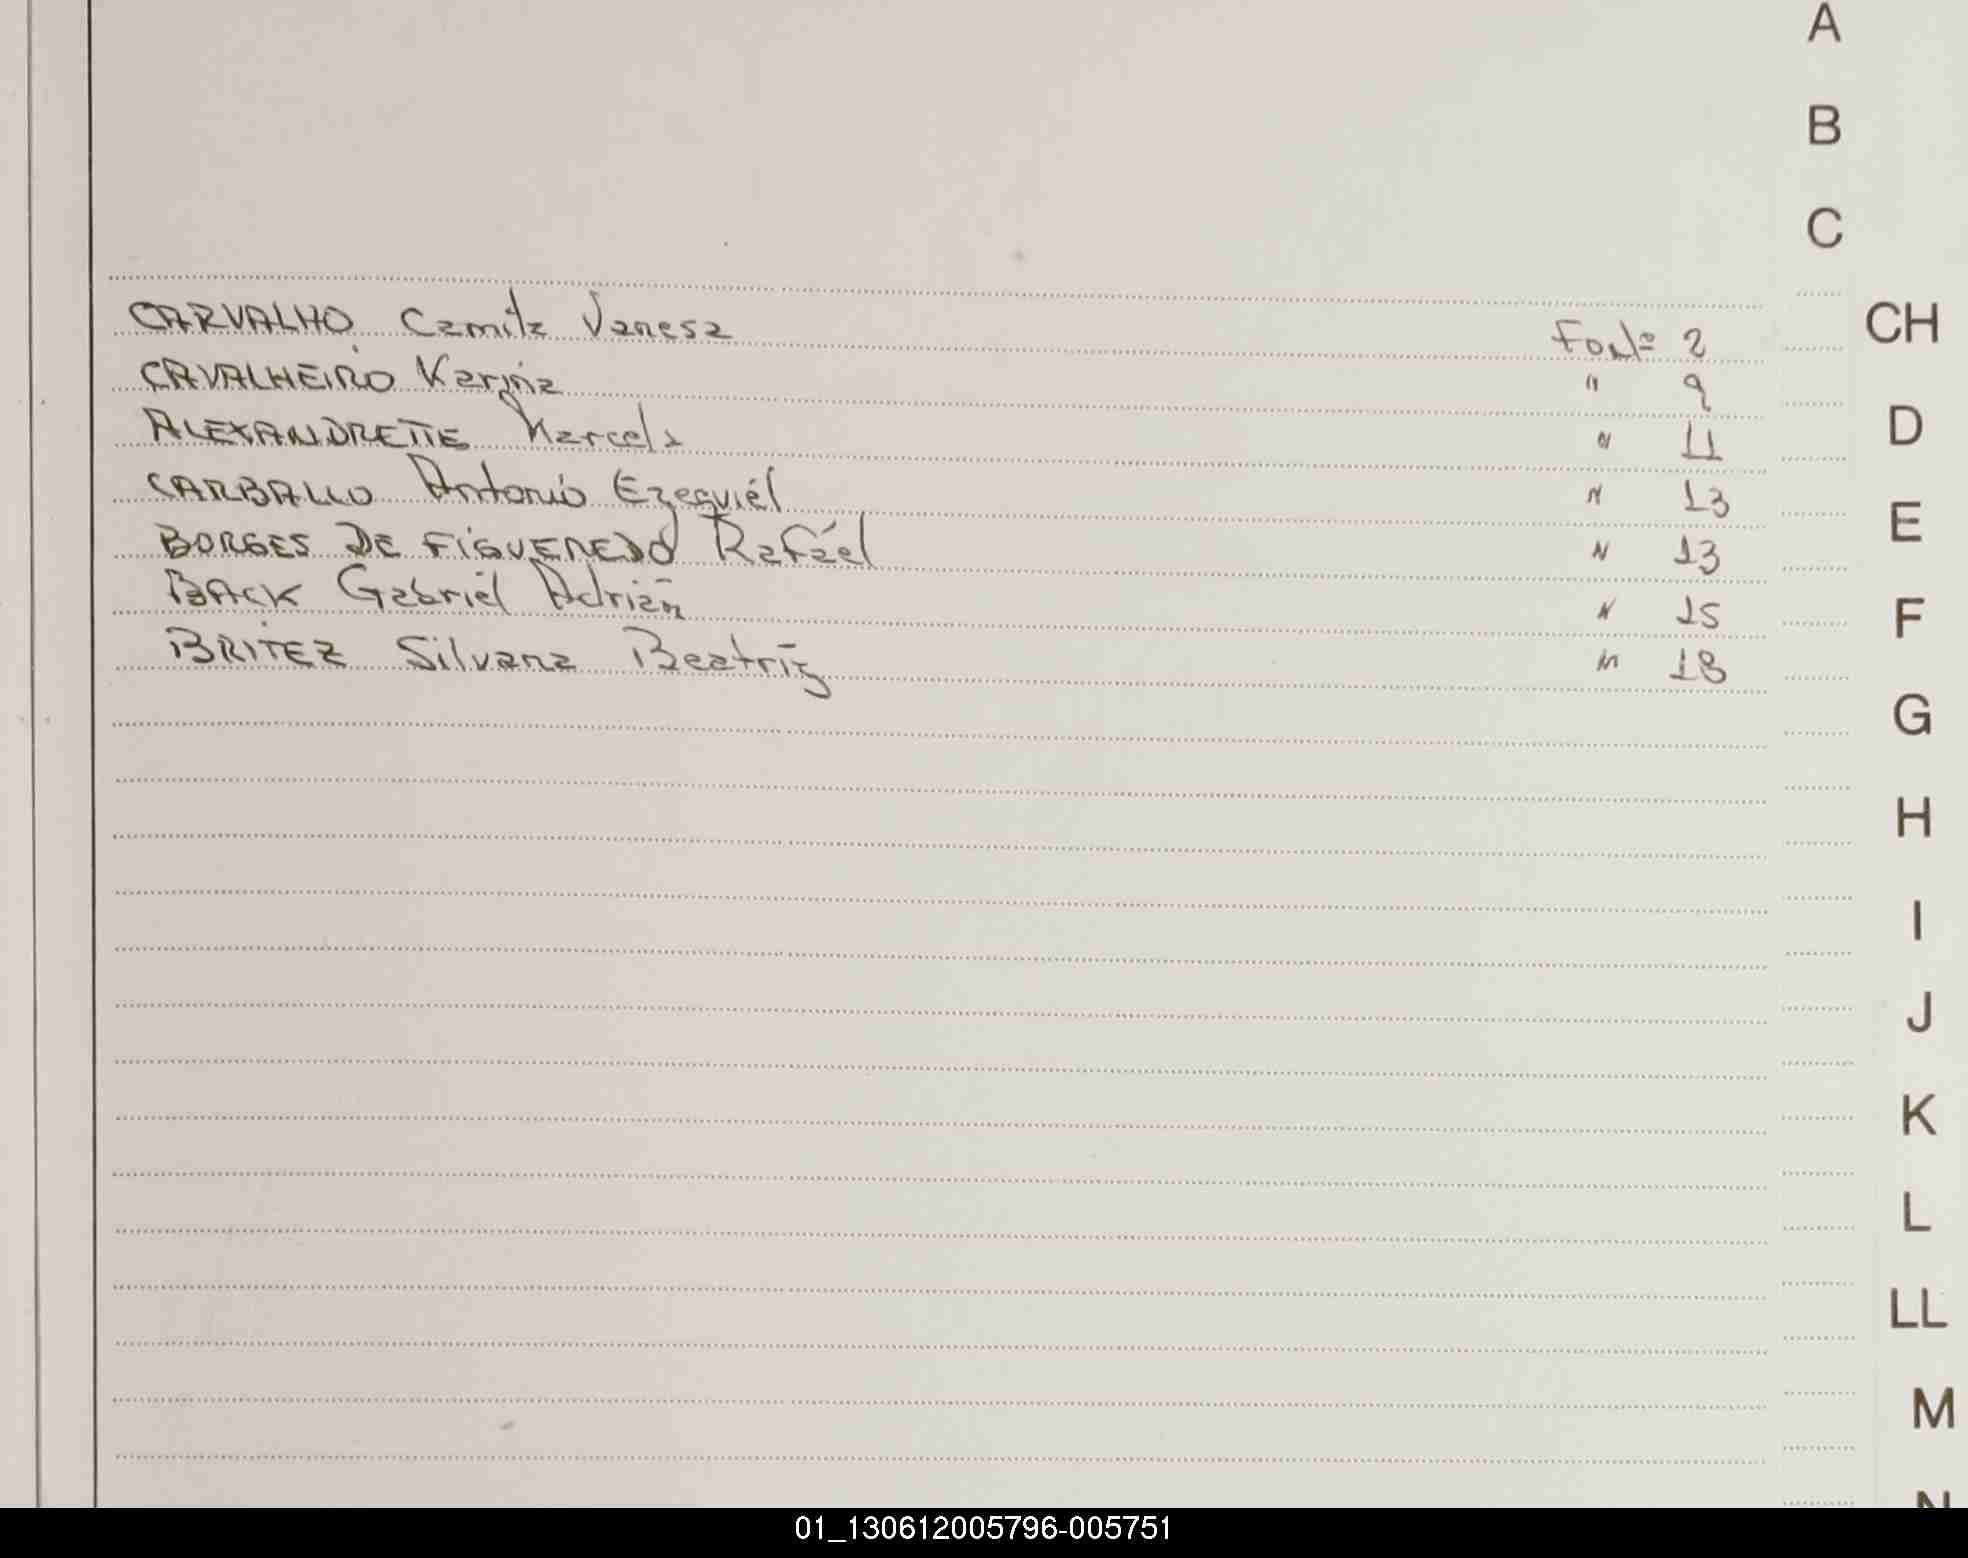 A
B
C
CARVALHO Camila Vanesa FoNº 2
CH
CAVALHEIRO Karina " 9
D
ALEXANDRETTE Marcela " 11
CARBALLO Antonio Ezequiel " 13
E
BORGES DE FIGUEREDO Rafael " 13
BACK Gabriel Adrián " 15
F
BRITEZ Silvana Beatriz " 18
G
H
I
J
K
L
LL
M
N
01_130612005796-005751